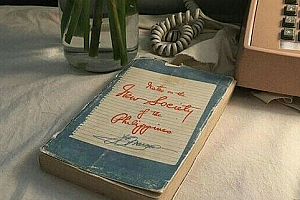 Notes on the
New Society
of the
Philippines